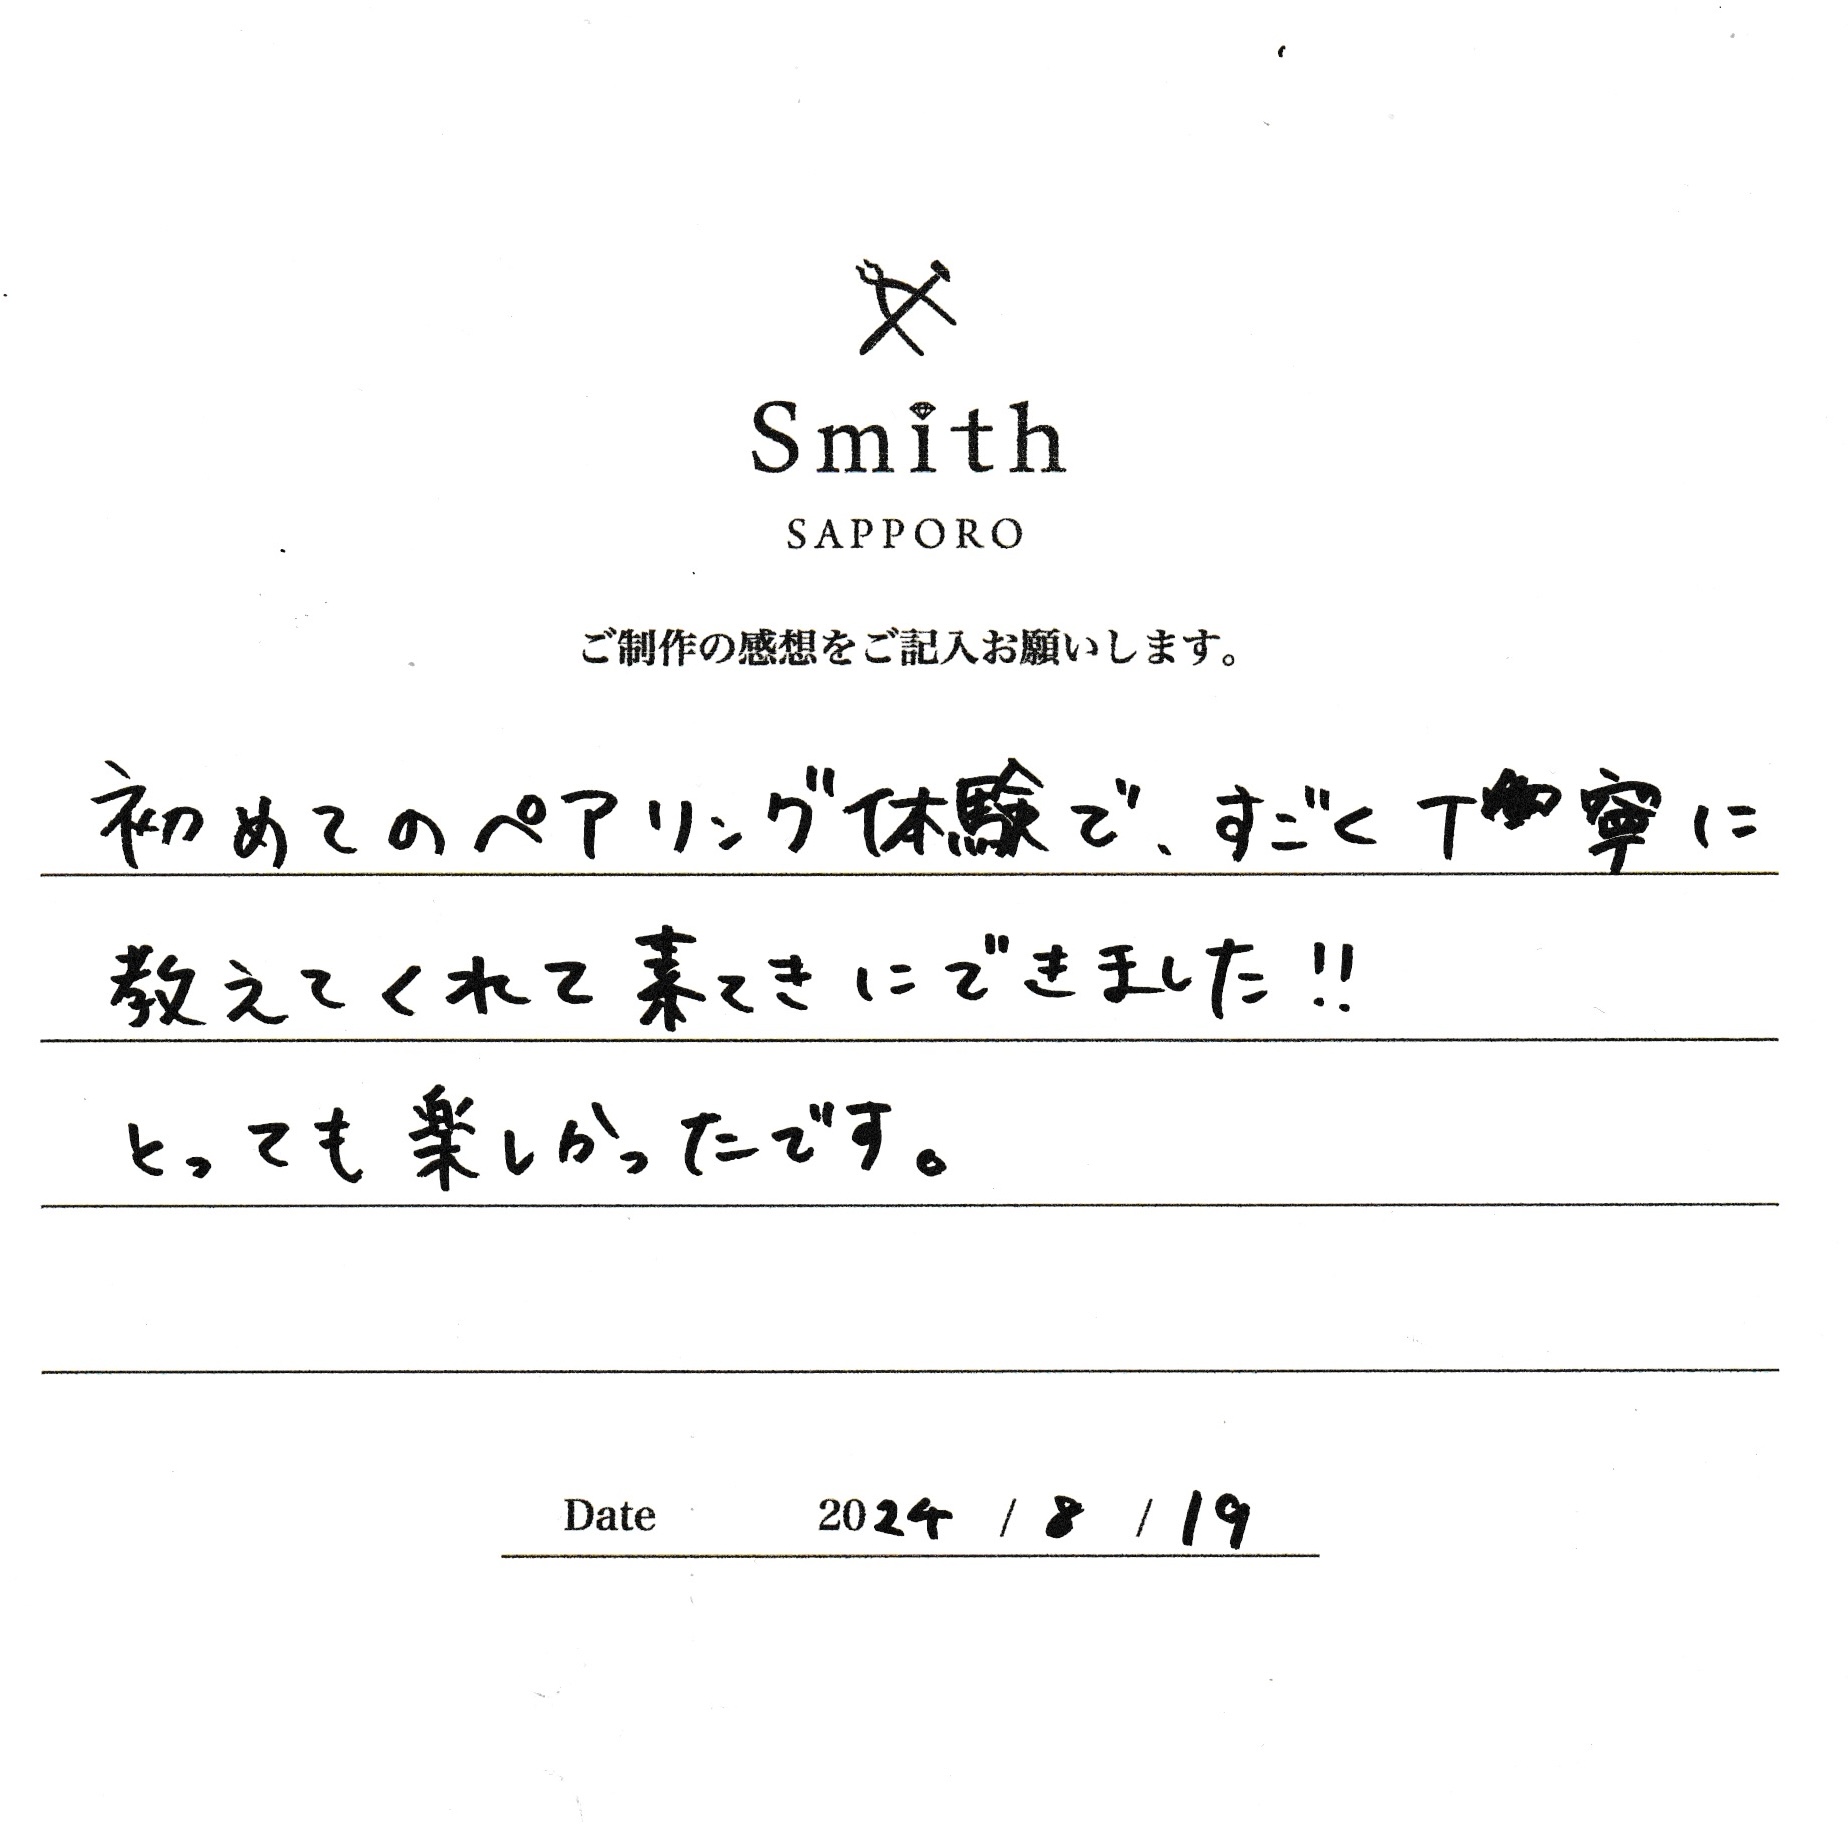 Smith
SAPPORO
ご制作の感想をご記入お願いします。
初めてのペアリング体験で、すごく丁寧に
教えてくれて素てきにできました!!
とっても楽しかったです。
Date 2024 / 8 / 19